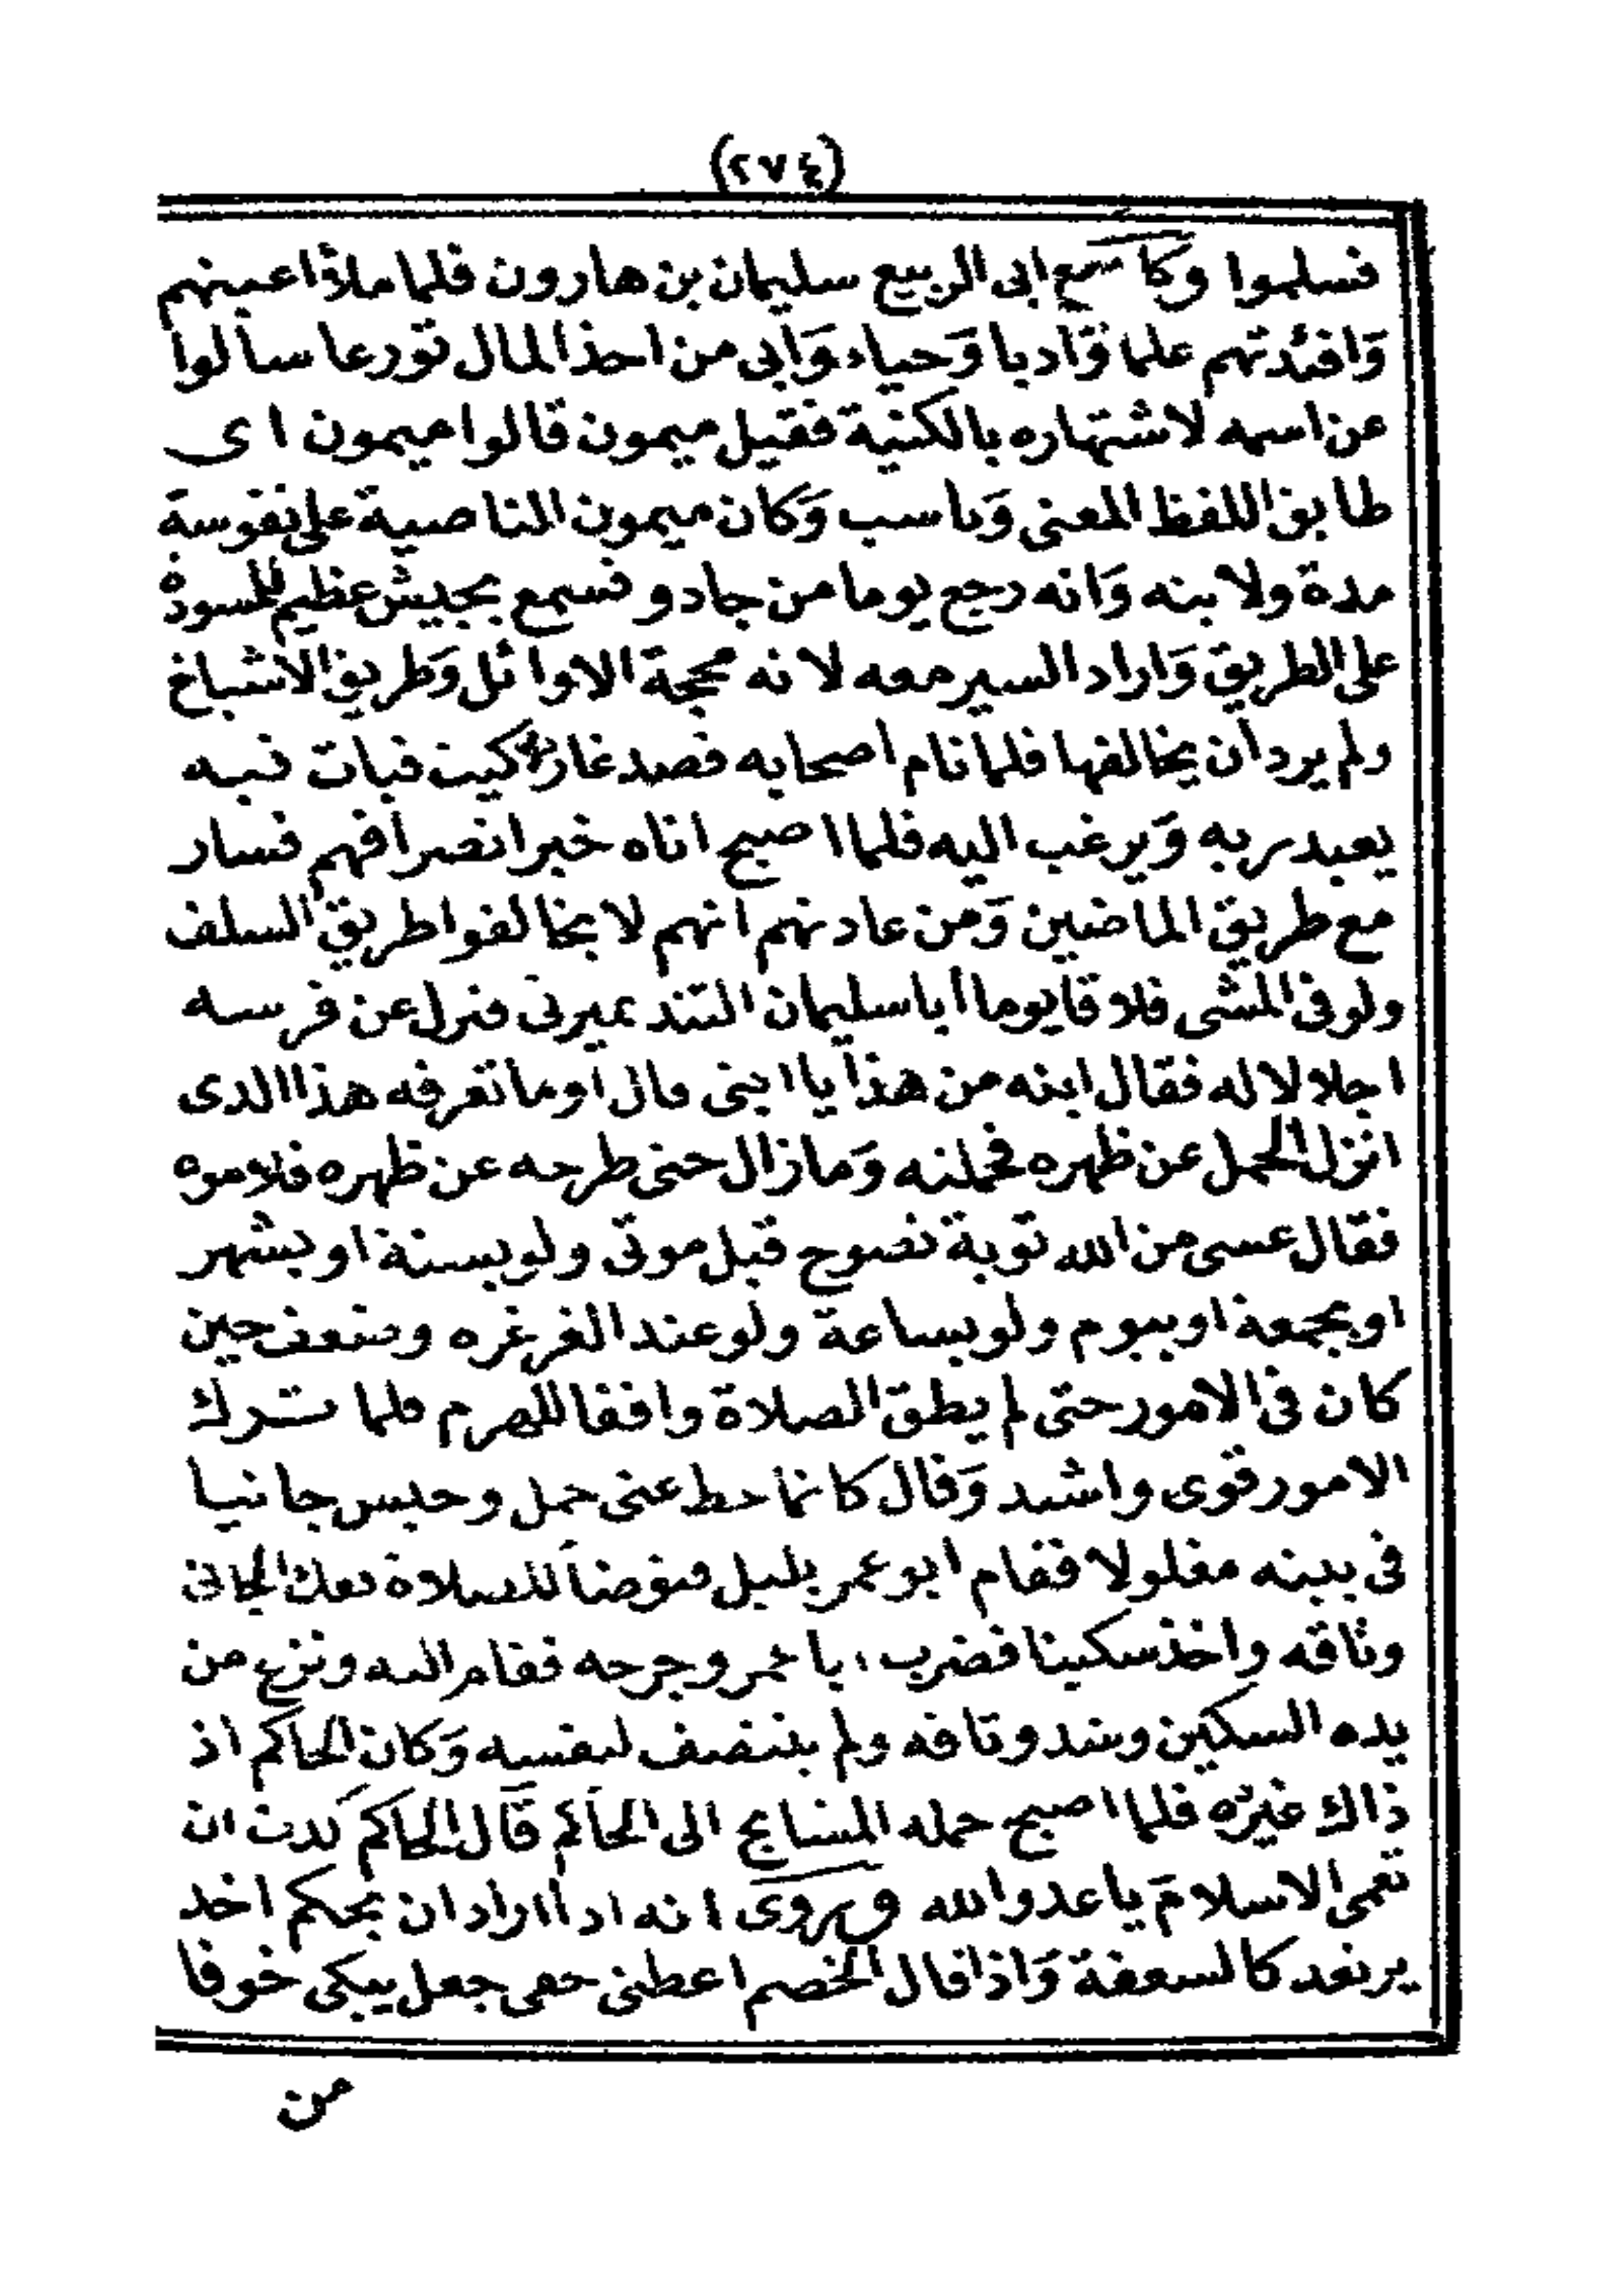 (٢٧٤)
فسلموا وكا سمع ابى الربيع سليمان بن هارون فلما ملأ اعينهم
وَافئدتهم علما وَادبا وَحياء وَابى من اخذ المال تورعا سالوا
عن اسمه لاشتهاره بالكنية فقيل ميمون قالوا ميمون اى
طابق اللفظ المعنى وَناسب وَكان ميمون الناصية على نفوسة
مدة ولابنه وَانه رجع يوما من جادو فسمع بجيش عظيم للمسودة
على الطريق وَاراد السير معه لانه محجة الاوائل وَطريق الاشياخ
ولم يرد ان يخالفها فلما نام اصحابه قصد غار كيت فبات فيه
يعبد ربه وَيرغب اليه فلما اصبح اتاه خبر انصرافهم فسار
مع طريق الماضين وَمن عادتهم انهم لا يخالفوا طريق السلف
ولو فى المشى فلاقا يوما أبا سليمان التندميرتى فنزل عن فرسه
اجلالا له فقال ابنه من هذا يا ابتى قال اوما تعرفه هذا الذى
انزل الحمل عن ظهره فحملته وَمازال حتى طرحه عن ظهره فلاموه
فقال عسى من الله توبة نصوح قبل موتى ولو بسنة او بشهر
او بجمعة او بيوم ولو بساعة ولو عند الغرغره وضعف حين
كان فى الامور حتى لم يطق الصلاة واقفا للهرم فلما ترك
الامور قوى واشتد وَقال كانما حط عنى حمل وحبس جانيا
فى بيته مغلولا فقام ابو عمر بليل فتوضأ للصلاة ففك الجانى
وثاقه واخذ سكينا فضرب ابا عمر وجرحه فقام اليه ونزع من
يده السكين وشد وثاقه ولم ينتصف لنفسه وَكان الحاكم اذ
ذاك غيره فلما اصبح حمله المشايخ الى الحاكم قال الحاكم كدت ان
تعمى الاسلام يا عدو الله ويروى انه اذا اراد ان يحكم اخذ
يرتعد كالسعفة وَاذا قال الخصم اعطنى حقى جعل يبكى خوفا
من